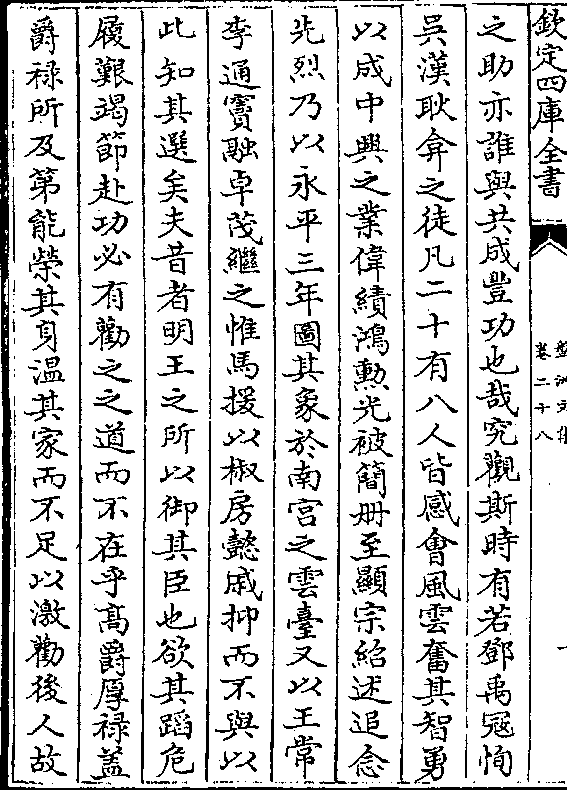 欽定四庫全書
盤洲文集
卷二十八
之助亦誰與共成豐功也哉究觀斯時有若鄧禹冦恂
吳漢耿弇之徒凡二十有八人皆感會風雲奮其智勇
以成中興之業偉績鴻勲光被簡册至顯宗紹述追念
先烈乃以永平三年圖其象於南宫之雲臺又以王常
李通竇融卓茂繼之惟馬援以椒房懿戚抑而不與以
此知其選矣夫昔者明王之所以御其臣也欲其蹈危
履艱竭節赴功必有勸之之道而不在乎髙爵厚禄盖
爵禄所及第能榮其身温其家而不足以激勸後人故